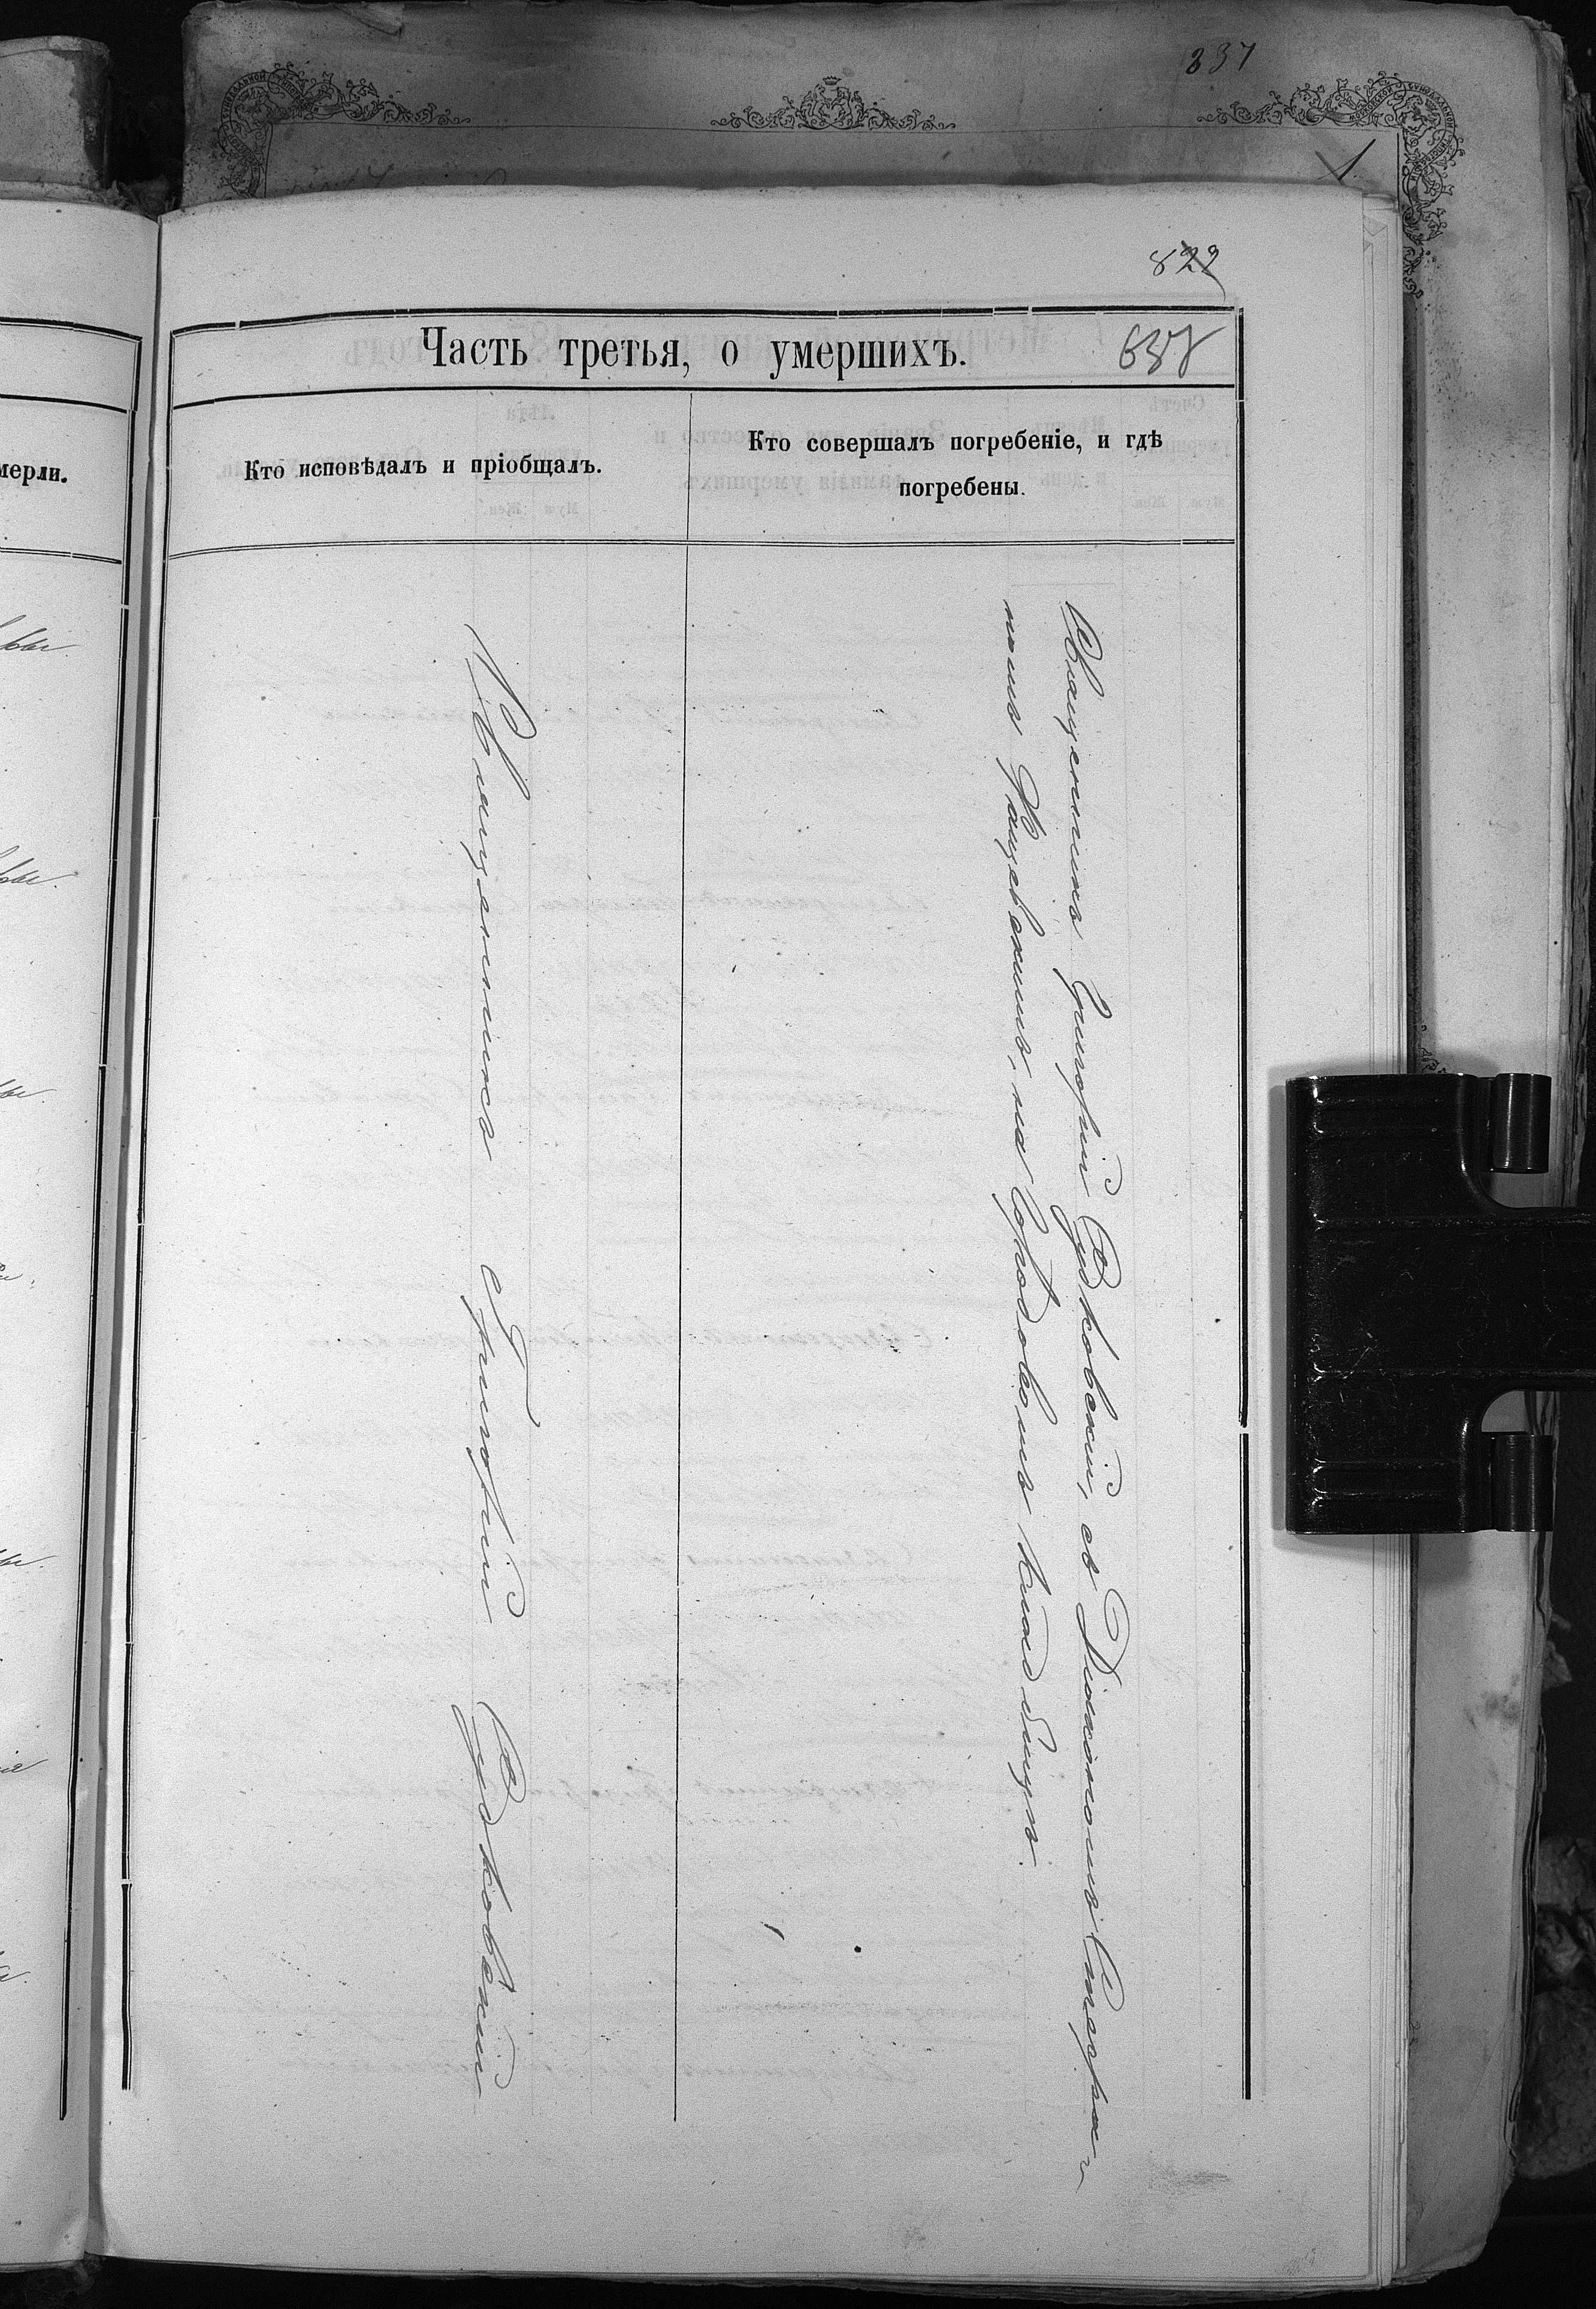 837
822
Часть третья, о умершихъ.
638
мерли.
Кто исповѣдалъ и пріобщалъ.
Кто совершалъ погребеніе, и гдѣ
погребены.
Священникъ Григорій Судковскій
Священникъ Григорій Судковскій, съ Діакономъ Стефа-
номъ Кащевскимъ, на Градскомъ кладбищѣ.